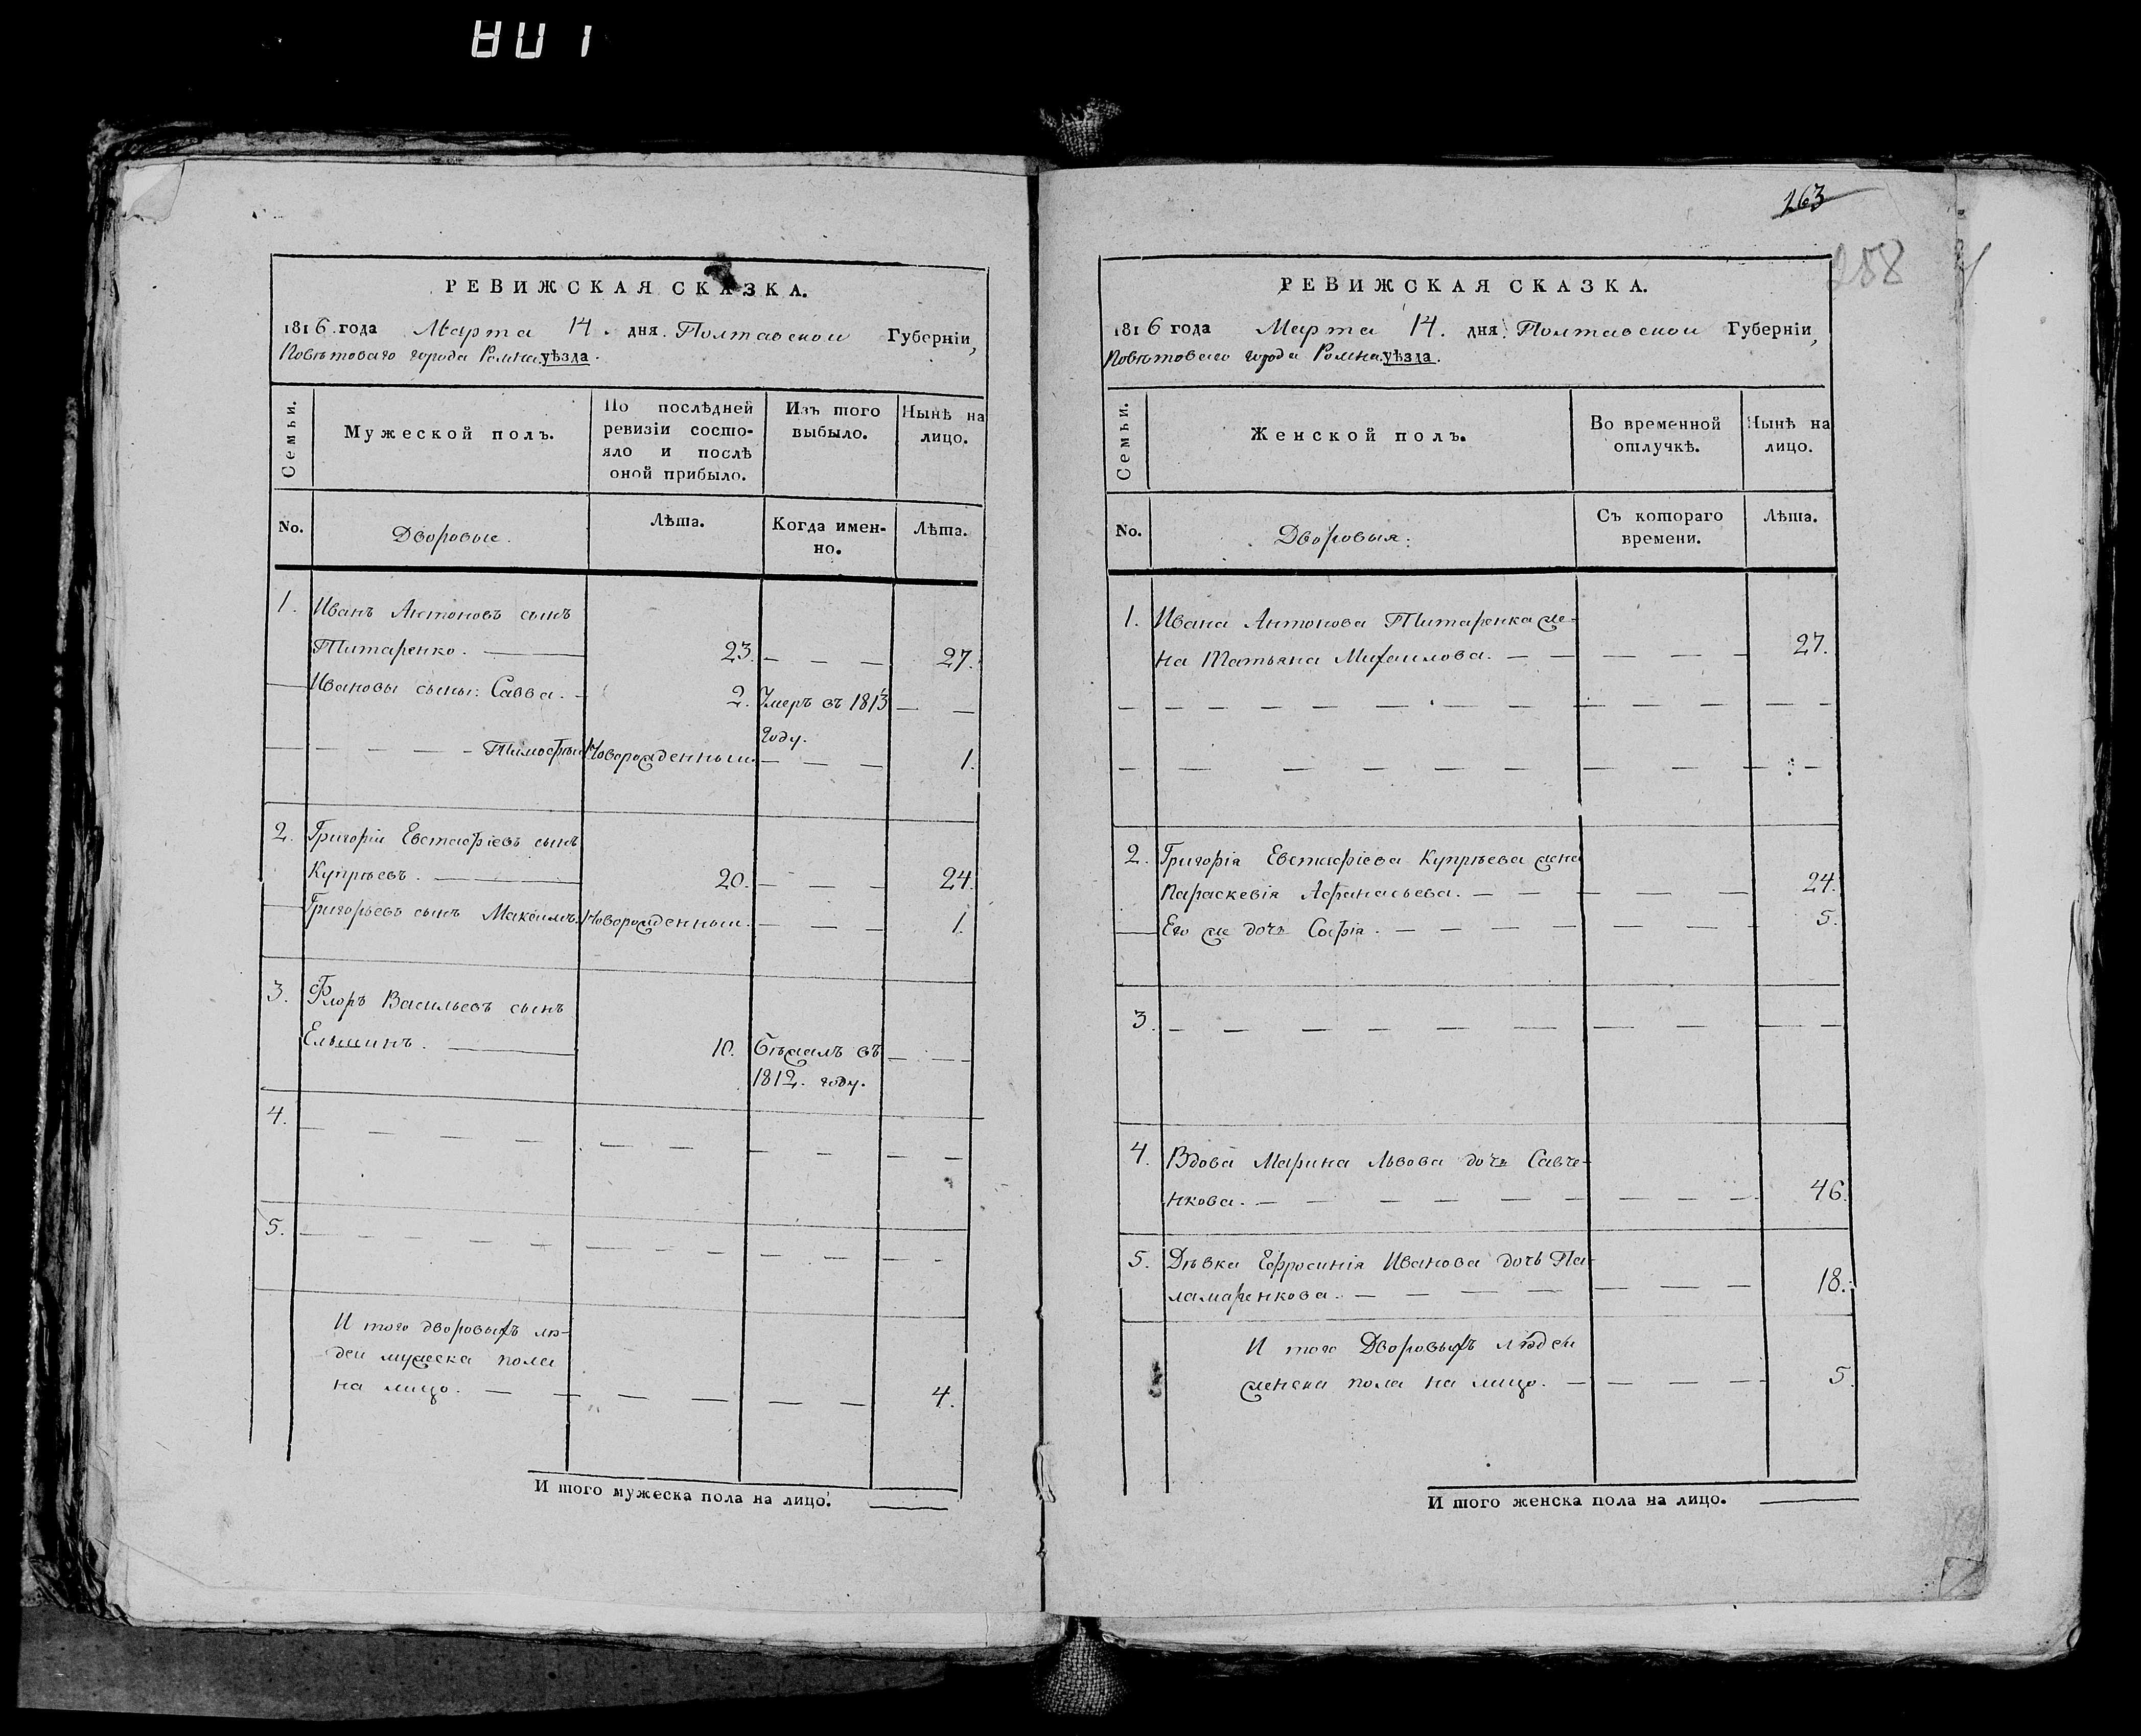 РЕВИЖСКАЯ СКАЗКА.
1816 года Марта 14. дня. Полтавской Губерніи,
Повѣтоваго города Ромна уѣзда.
Семьи.
Мужеской полъ.
По послѣдней
ревизіи состо-
яло и послѣ
оной прибыло.
Изъ того
выбыло.
Нынѣ на
лицо.
No.
Дворовые.
Лѣта.
Когда имен-
но.
Лѣта.
1. Иванъ Антоновъ сынъ
Титаренко. 23. 27.
Ивановы сыны: Савва. 2. Умеръ въ 1813
году.
Тимофѣй Новорожденный. 1.
2. Григорій Евстафіевъ сынъ
Купрѣевъ. 20. 24.
Григорьевъ сынъ Максимъ. Новорожденный. 1.
3. Флоръ Васильевъ сынъ
Ельшинъ. 10. Бѣжалъ въ
1812. году.
4.
5.
И того дворовыхъ лю-
дей мужеска пола
на лицо. 4.
И того мужеска пола на лицо.
263
258
РЕВИЖСКАЯ СКАЗКА.
1816 года Марта 14. дня. Полтавской Губерніи,
Повѣтоваго города Ромна уѣзда.
Семьи.
Женской полъ.
Во временной
отлучкѣ.
Нынѣ на
лицо.
No.
Дворовыя.
Съ котораго
времени.
Лѣта.
1. Ивана Антонова Титаренка же-
на Татьяна Михайлова. 27.
2. Григорія Евстафіева Купрѣева жена
Параскевія Афанасьева. 24.
Его же дочь Софія. 5.
3.
4. Вдова Марина Львова дочь Савче-
нкова. 46.
5. Дѣвка Ефросинія Иванова дочь Па-
ламаренкова. 18.
И того Дворовыхъ людей
женска пола на лицо. 5.
И того женска пола на лицо.